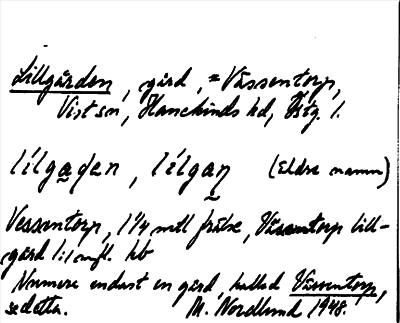 Lillgården, gård, = Vässentorp,
Vist sn, Hanekinds hd, Östg. l.
lílga̲den, lílgaṉ (Äldre namn)
Vessentorp, 1 1/4 mtl frälse, Vässentorp lill-
gård 1:1 mtl. kb
Numera endast en gård, kallad Vässentorp,
se detta. M. Nordlund 1948.